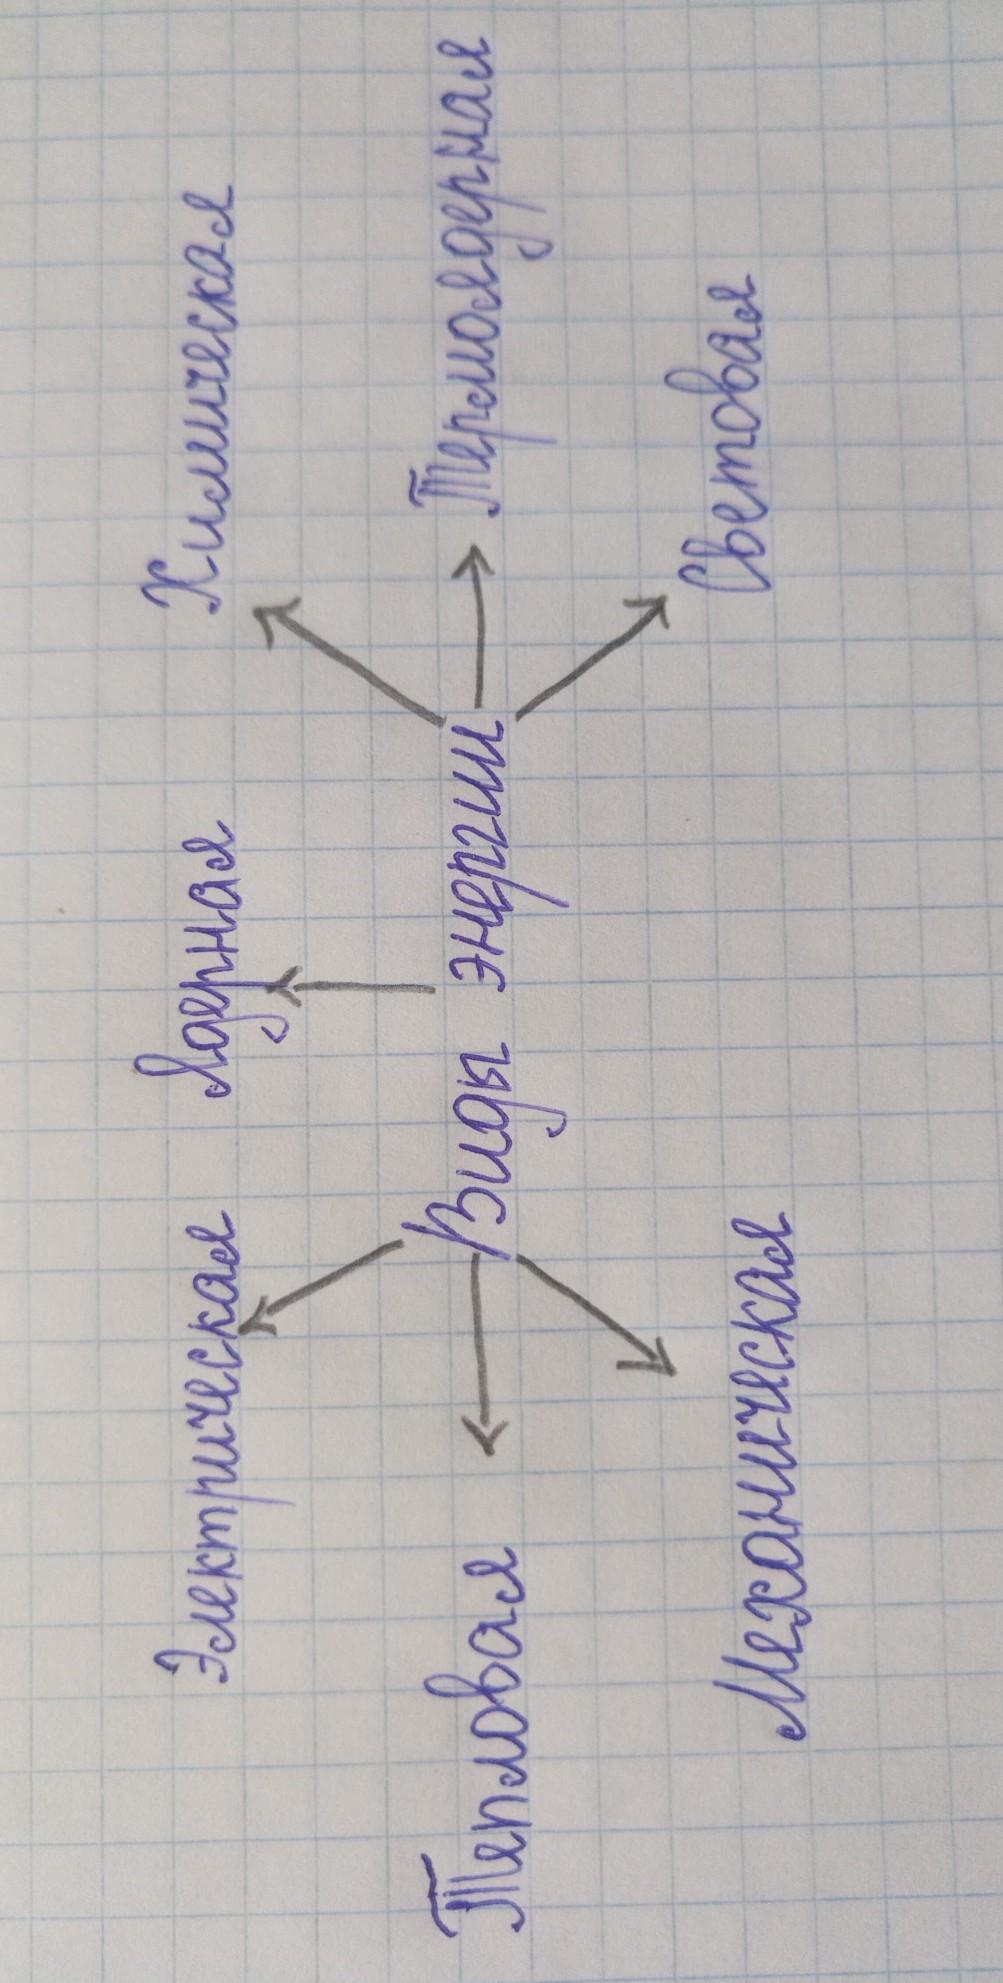 Электрическая
Ядерная
Химическая
Тепловая
Виды энергии
Термоядерная
Механическая
Световая